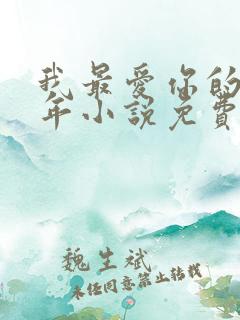 我最爱你的
年小说免費
魏生斌
未经同意禁止转载